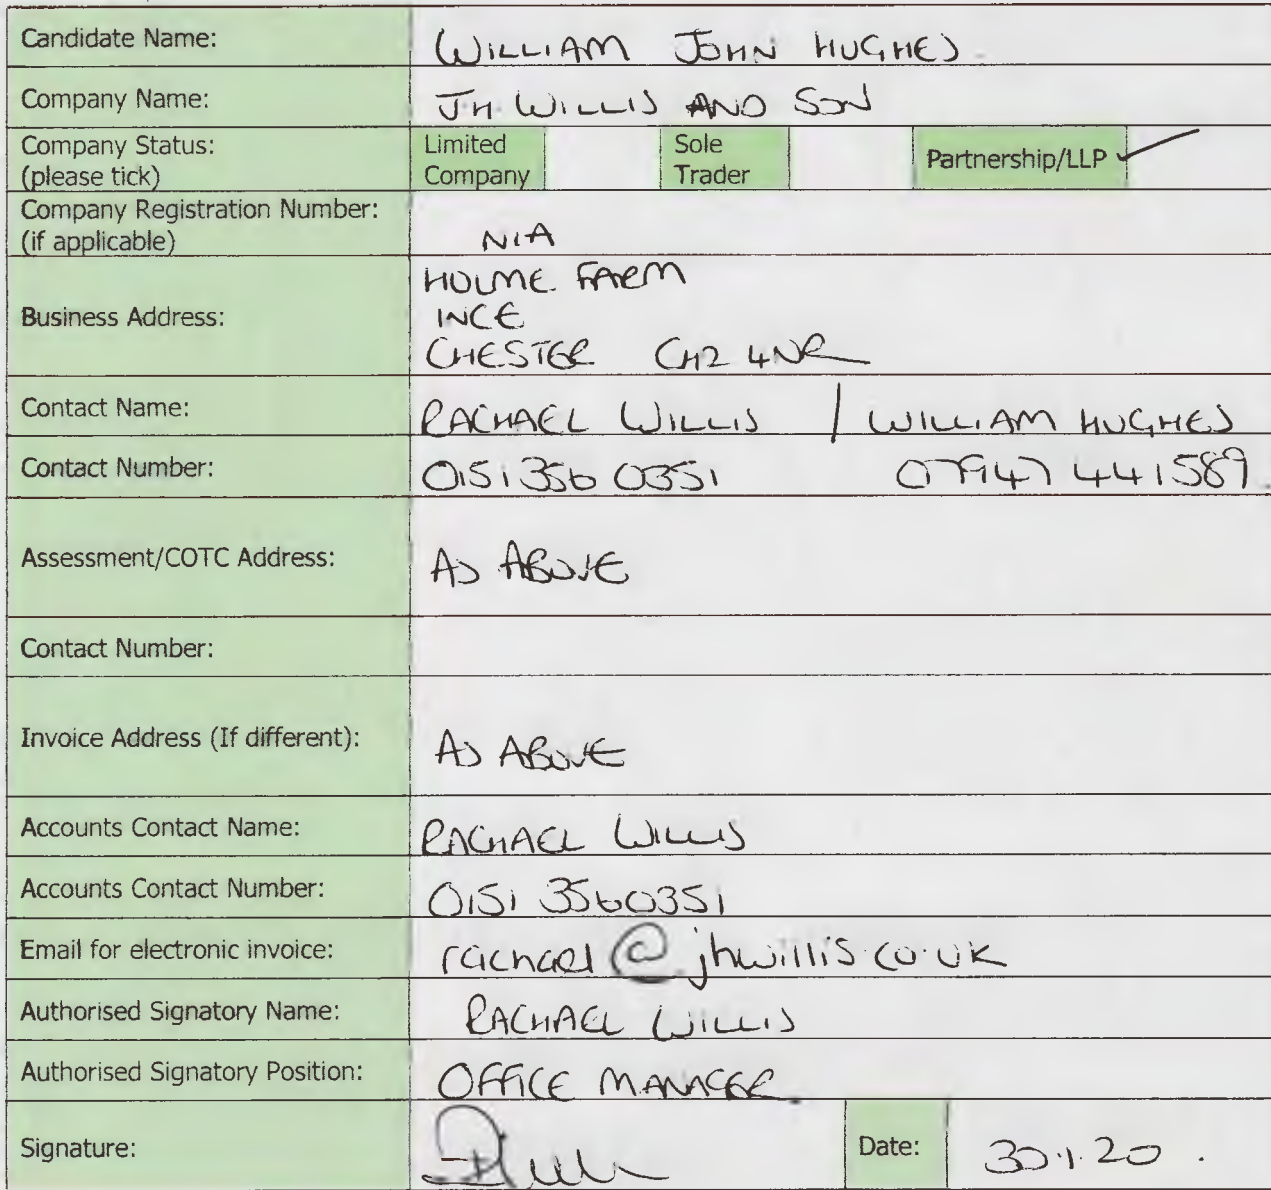 Candidate Name: WILLIAM JOHN HUGHES
Company Name: JH WILLIS AND SON
Company Status: Limited Sole Partnership/LLP ✓
(please tick) Company Trader
Company Registration Number:
(if applicable) N/A
HOLME FARM
Business Address: INCE
CHESTER CH2 4NR
Contact Name: RACHAEL WILLIS / WILLIAM HUGHES
Contact Number: 0151 356 0351 07947 441589
Assessment/COTC Address: AS ABOVE
Contact Number:
Invoice Address (If different): AS ABOVE
Accounts Contact Name: RACHAEL WILLIS
Accounts Contact Number: 0151 3560351
Email for electronic invoice: rachael@jhwillis.co.uk
Authorised Signatory Name: RACHAEL WILLIS
Authorised Signatory Position: OFFICE MANAGER
Signature: Date: 30.1.20.